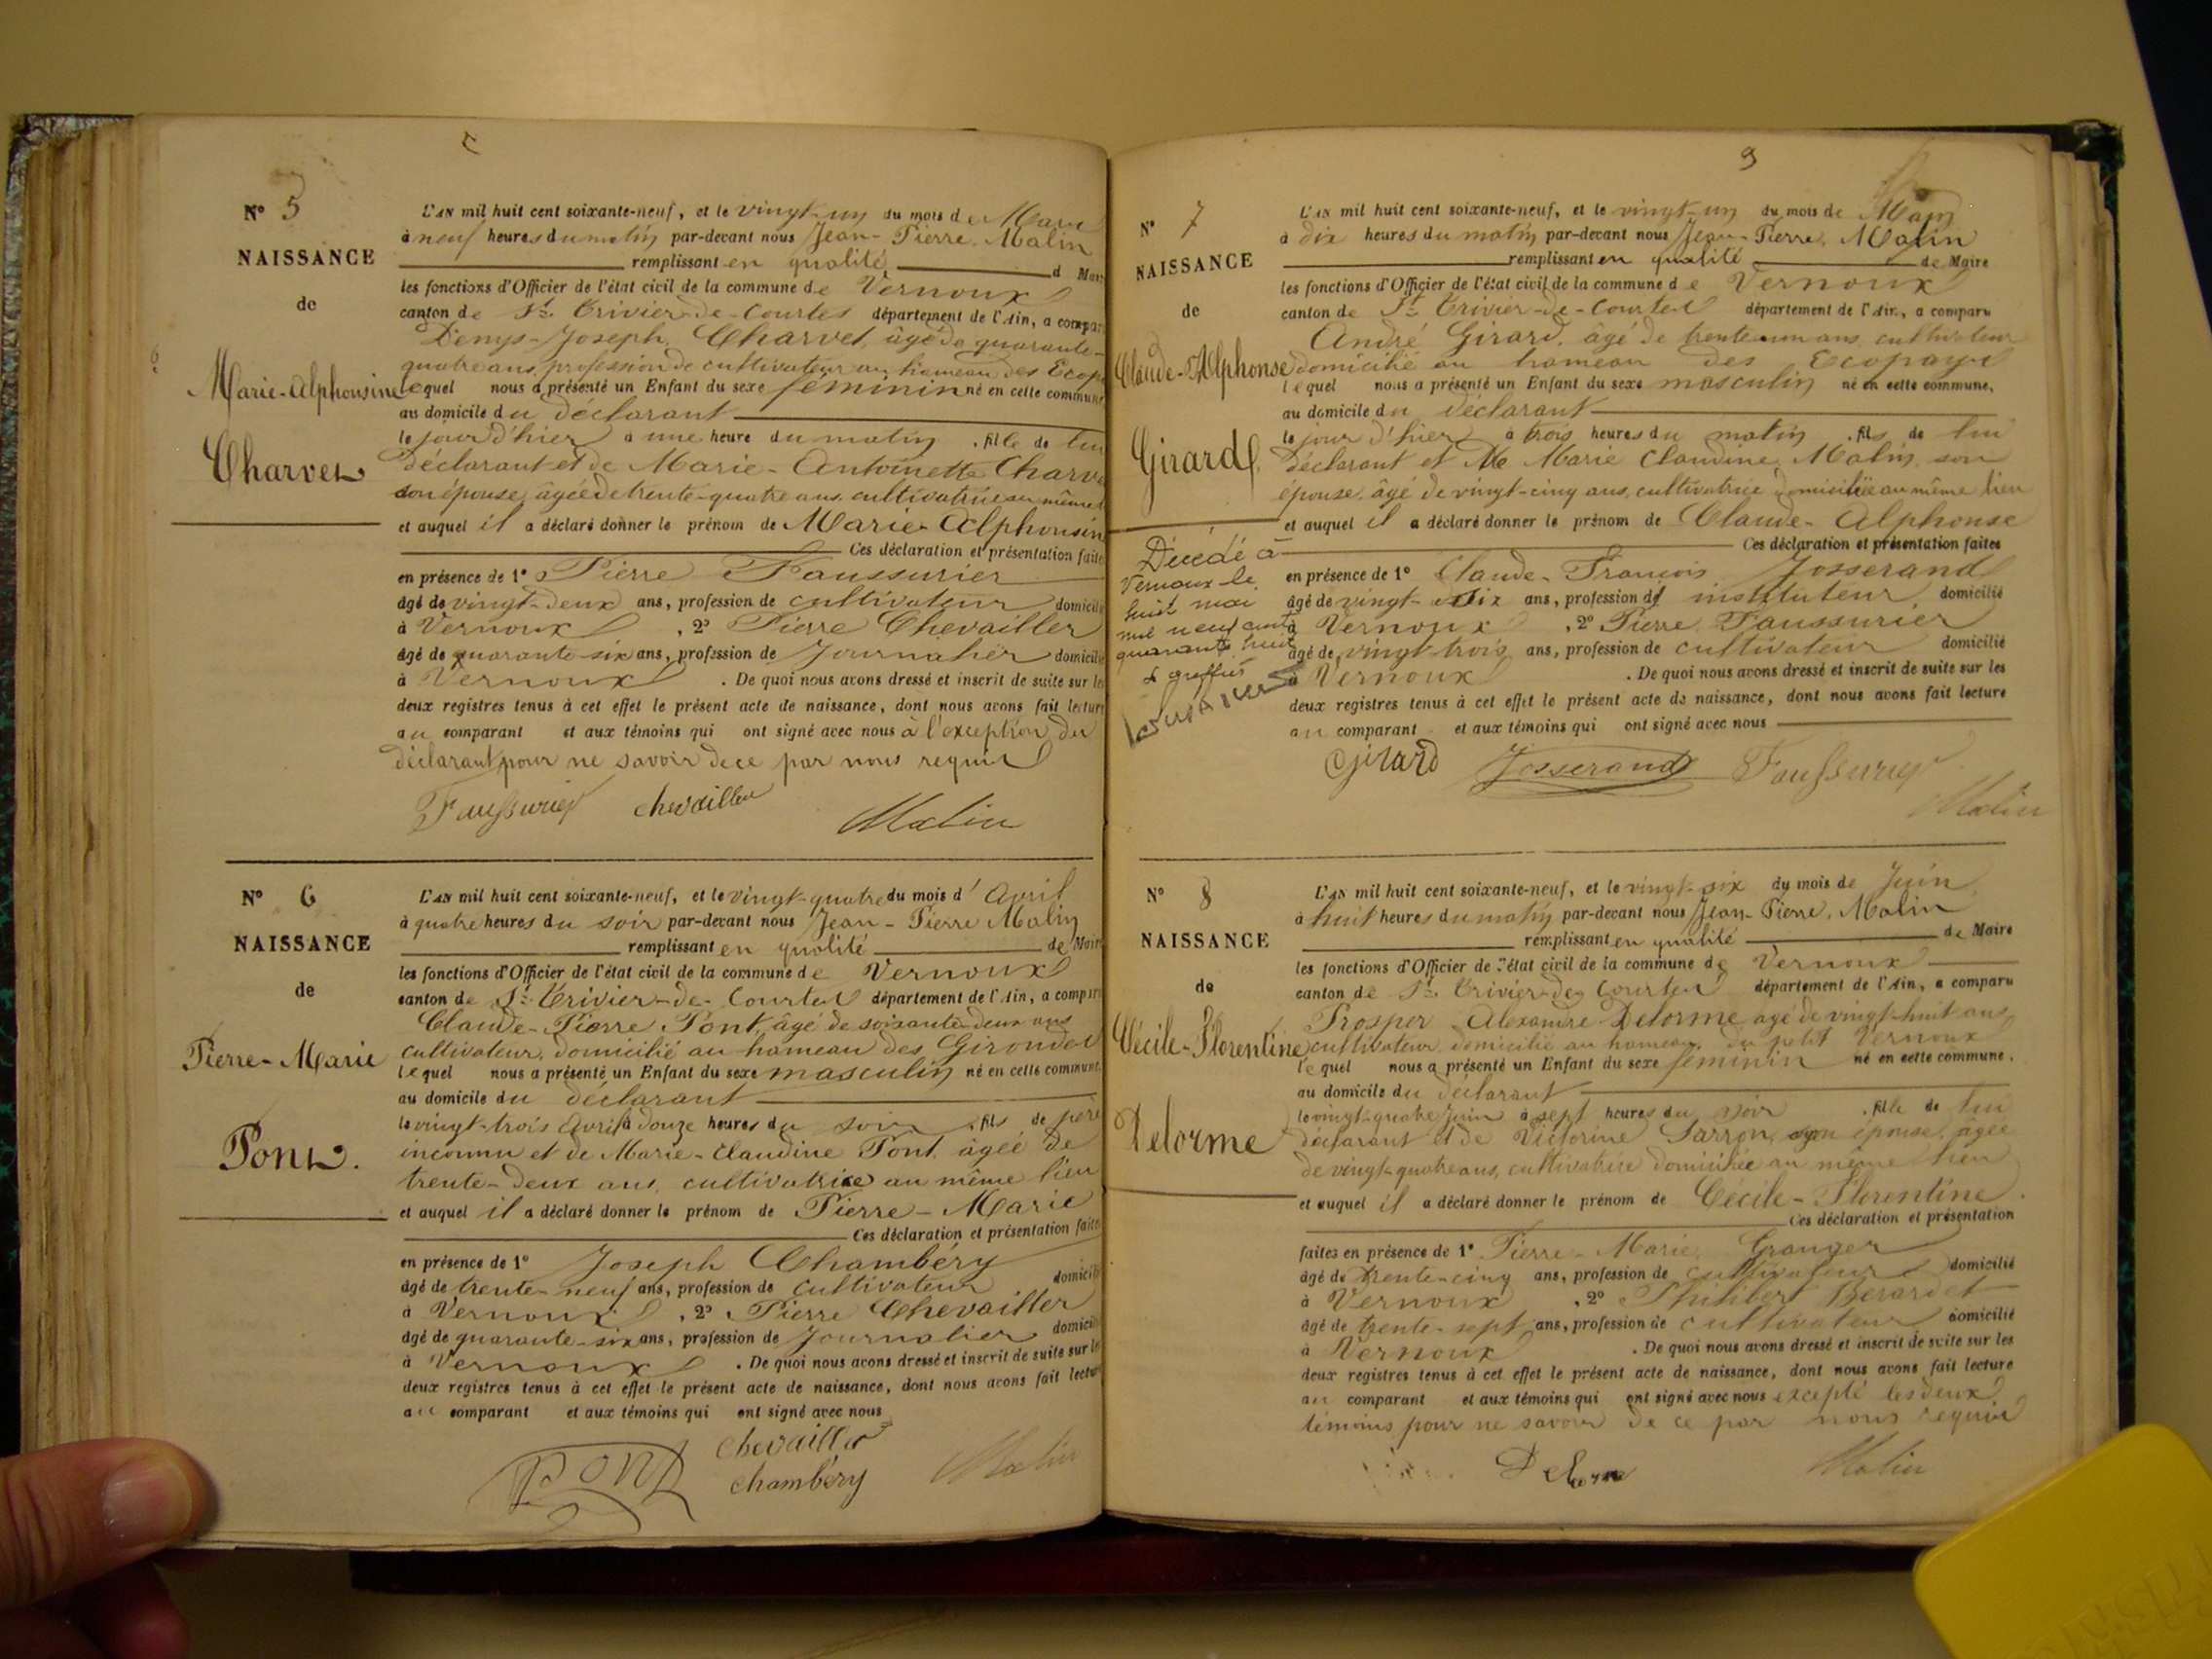 N° 5
NAISSANCE
de
Marie-Alphonsine
Charvet
L'AN mil huit cent soixante-neuf, et le vingt-un du mois de Mars
à neuf heures du matin par-devant nous Jean-Pierre Malin
remplissant en qualité d Maire
les fonctions d'Officier de l'état civil de la commune de Vernoux
canton de St Trivier-de-Courtes département de l'Ain, a comparu
Denys-Joseph Charvet, âgé de quarante-
quatre ans, profession de cultivateur au hameau des Ecop
lequel nous a présenté un Enfant du sexe féminin né en cette commune
au domicile du déclarant
le jour d'hier à une heure du matin, fille de lui
déclarant et de Marie-Antoinette Charve
son épouse, âgée de trente-quatre ans, cultivatrice au même l
et auquel il a déclaré donner le prénom de Marie-Alphonsin
Ces déclaration et présentation faites
en présence de 1° Pierre Faussurier
âgé de vingt-deux ans, profession de cultivateur domicilié
à Vernoux, 2° Pierre Chevailler
âgé de quarante-six ans, profession de Journalier domicilié
à Vernoux. De quoi nous avons dressé et inscrit de suite sur les
deux registres tenus à cet effet le présent acte de naissance, dont nous avons fait lecture
au comparant et aux témoins qui ont signé avec nous à l'exception du
déclarant pour ne savoir de ce par nous requis
Faussurier chevailler
Malin
N° 6
NAISSANCE
de
Pierre-Marie
Pont.
L'AN mil huit cent soixante-neuf, et le vingt-quatre du mois d'Avril
à quatre heures du soir par-devant nous Jean-Pierre Malin
remplissant en qualité de Maire
les fonctions d'Officier de l'état civil de la commune de Vernoux
canton de St Trivier-de-Courtes département de l'Ain, a comparu
Claude-Pierre Pont, âgé de soixante-deux ans
cultivateur, domicilié au hameau des Girondes
lequel nous a présenté un Enfant du sexe masculin né en cette commune
au domicile du déclarant
le vingt-trois Avril à douze heures du soir, fils de père
inconnu et de Marie-Claudine Pont, âgée de
trente-deux ans, cultivatrice au même lieu
et auquel il a déclaré donner le prénom de Pierre-Marie
Ces déclaration et présentation faites
en présence de 1° Joseph Chambéry
âgé de trente-neuf ans, profession de cultivateur domicilié
à Vernoux, 2° Pierre Chevailler
âgé de quarante-six ans, profession de Journalier domicilié
à Vernoux. De quoi nous avons dressé et inscrit de suite sur les
deux registres tenus à cet effet le présent acte de naissance, dont nous avons fait lecture
au comparant et aux témoins qui ont signé avec nous
Pont chevailler
chambéry Malin
9
N° 7
NAISSANCE
de
Claude-Alphonse
Girard
Décédé à
Vernoux le
huit mai
mil neuf cent
quarante huit
L greffier
L'AN mil huit cent soixante-neuf, et le vingt-un du mois de Mars
à dix heures du matin par-devant nous Jean-Pierre Malin
remplissant en qualité de Maire
les fonctions d'Officier de l'état civil de la commune de Vernoux
canton de St Trivier-de-Courtes département de l'Ain, a comparu
André Girard, âgé de trente un ans, cultivateur
domicilié au hameau des Ecopays
lequel nous a présenté un Enfant du sexe masculin né en cette commune,
au domicile du déclarant
le jour d'hier à trois heures du matin, fils de lui
déclarant et de Marie Claudine Malin, son
épouse, âgé de vingt-cinq ans, cultivatrice domiciliée au même lieu
et auquel il a déclaré donner le prénom de Claude-Alphonse
Ces déclaration et présentation faites
en présence de 1° Claude-François Josserand
âgé de vingt-six ans, profession d instituteur, domicilié
à Vernoux, 2° Pierre Faussurier
âgé de vingt trois ans, profession de cultivateur domicilié
à Vernoux. De quoi nous avons dressé et inscrit de suite sur les
deux registres tenus à cet effet le présent acte de naissance, dont nous avons fait lecture
au comparant et aux témoins qui ont signé avec nous
Girard Josserand Faussurier
Malin
N° 8
NAISSANCE
de
Cécile-Florentine
Delorme
L'AN mil huit cent soixante-neuf, et le vingt-six du mois de Juin
à huit heures du matin par-devant nous Jean-Pierre Malin
remplissant en qualité de Maire
les fonctions d'Officier de l'état civil de la commune de Vernoux
canton de St Trivier-de-Courtes département de l'Ain, a comparu
Prosper Alexandre Delorme, âgé de vingt-huit ans
cultivateur domicilié au hameau du petit Vernoux
lequel nous a présenté un Enfant du sexe féminin né en cette commune,
au domicile du déclarant
le vingt-quatre Juin à sept heures du soir, fille de lui
déclarant et de Victorine Sarron, son épouse, âgée
de vingt-quatre ans, cultivatrice domiciliée au même lieu
et auquel il a déclaré donner le prénom de Cécile-Florentine
Ces déclaration et présentation
faites en présence de 1° Pierre-Marie Granger
âgé de trente-cinq ans, profession de cultivateur domicilié
à Vernoux, 2° Philibert Berardet
âgé de trente-sept ans, profession de cultivateur domicilié
à Vernoux. De quoi nous avons dressé et inscrit de suite sur les
deux registres tenus à cet effet le présent acte de naissance, dont nous avons fait lecture
au comparant et aux témoins qui ont signé avec nous excepté les deux
témoins pour ne savoir de ce par nous requis
Delorme Malin